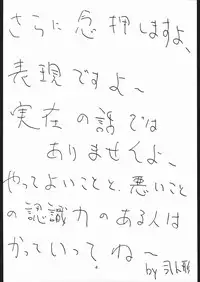 さらに念押しますよ、
表現ですよ〜
実在の話では
ありませんよ、
やってよいことと、悪いこと
の認識力のある人は
かっていって。ね〜
by